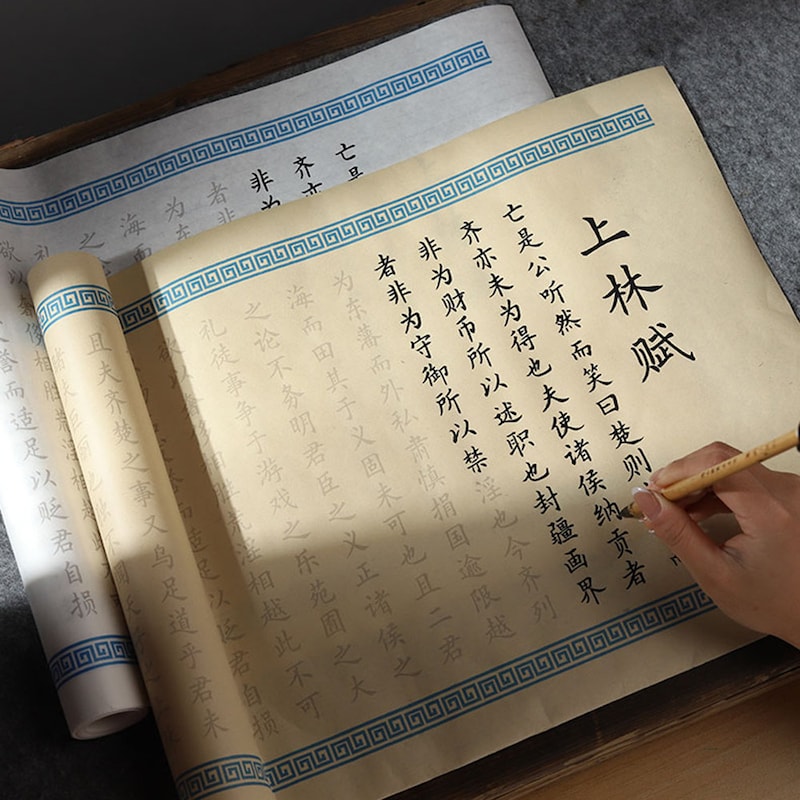 上林赋
亡是公听然而笑曰楚则
齐亦未为得也夫使诸侯纳贡者
非为财币所以述职也封疆画界
者非为守御所以禁淫也今齐列
为东藩而外私肃慎捐国逾限越
海而田其于义固未可也且二君
之论不务明君臣之义正诸侯之
礼徒事争于游戏之乐苑囿之大
欲以荒淫相越此不可
而适足以贬君自损
且夫齐楚之事又乌足道乎君未
亡是
齐亦
非为
者非
为东
海而
之
礼
欲以奢侈相胜荒淫相越此
誉而适足以贬君自损